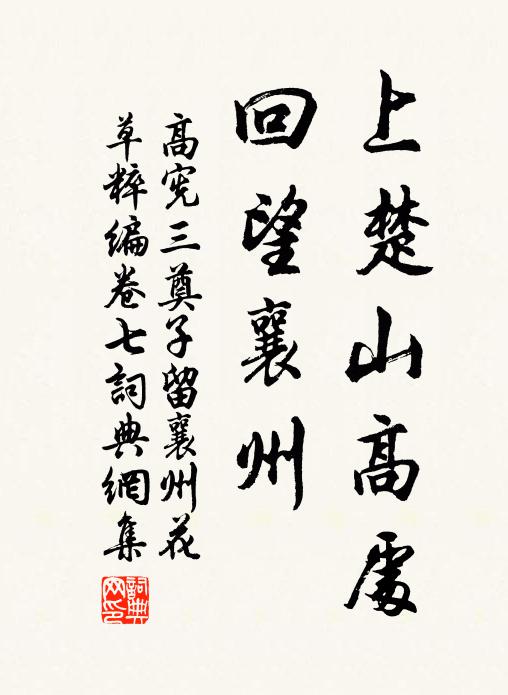 上楚山高處
回望襄州
高宪三奠子留襄州花
草粹編卷七詞典網集
詞典網印